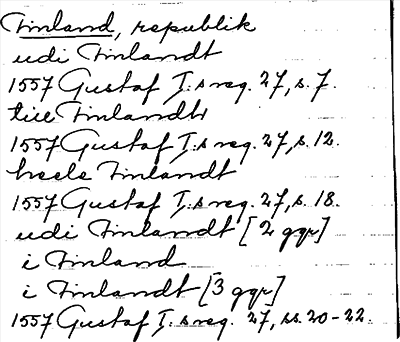 Finland, republik
udi Finlandt
1557 Gustaf I:s reg. 27, s. 7.
till Finlandt
1557 Gustaf I:s reg. 27, s. 12.
heele Finlandt
1557 Gustaf I:s reg. 27, s. 18.
udi Finlandt [2 ggr]
i Finland
i Finlandt [3 ggr]
1557 Gustaf I:s reg. 27, ss. 20-22.